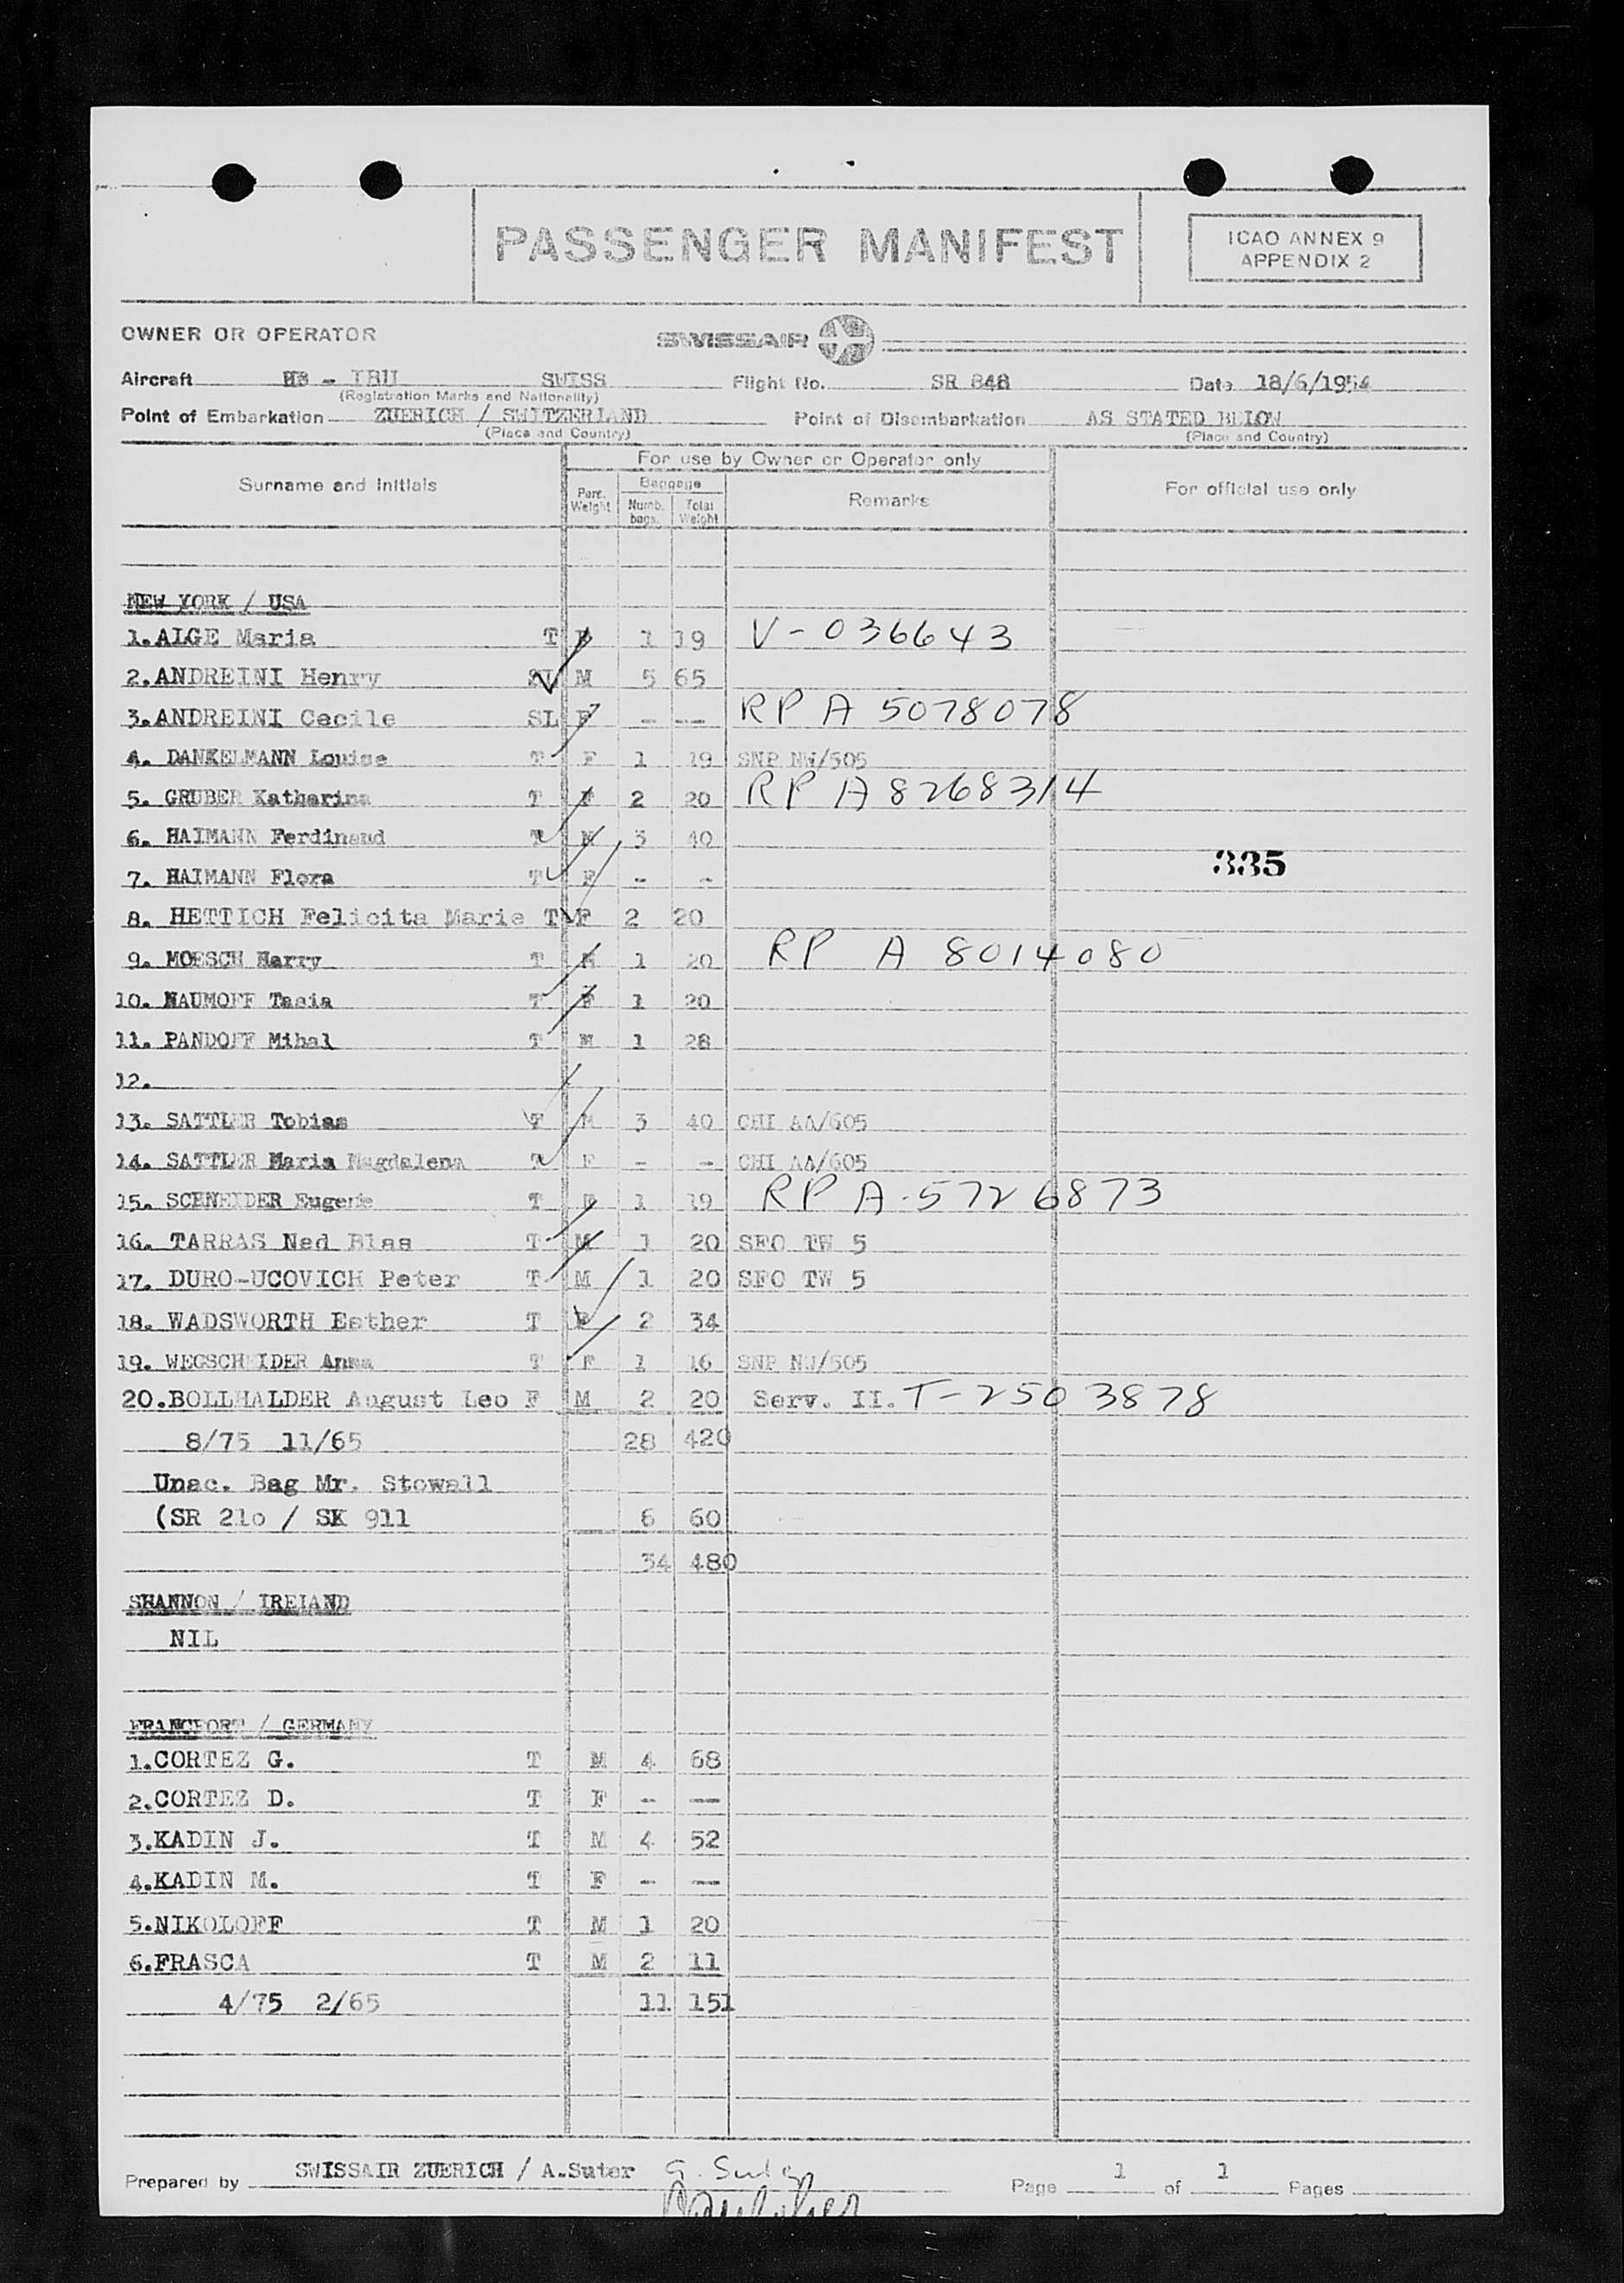 PASSENGER MANIFEST
ICAO ANNEX 9
APPENDIX 2
OWNER OR OPERATOR SWISSAIR
Aircraft HB - SWISS Flight No. SR 848 Date 18/6/1954
(Registration Marks and Nationality)
Point of Embarkation ZUERICH / SWITZERLAND Point of Disembarkation AS STATED BELOW
(Place and Country) (Place and Country)
For use by Owner or Operator only
Surname and Initials Pers. Weight Baggage Numb. bags. Total Weight Remarks For official use only
NEW YORK / USA
1.ALGE Maria T F 1 19 V-036643
2.ANDREINI Henry SL M 5 65
3.ANDREINI Cecile SL F - -- RP A 5078078
4. DANKELMANN Louise T F 1 19 SNP NW/505
5. GRUBER Katharina T F 2 20 RP A8268314
6. HAIMANN Ferdinand T M 3 40
7. HAIMANN Flora T F - -
335
8. HETTICH Felicita Marie T F 2 20
9. MOESCH Harry T M 1 20 RP A 8014080
10. NAUMOFF Tasia T F 1 20
11. PANDOFF Mihal T M 1 28
12.
13. SATTLER Tobias T M 3 40 CHI AA/605
14. SATTLER Maria Magdalena T F - - CHI AA/605
15. SCHNEIDER Eugenie T F 1 19 RP A-5726873
16. TARRAS Ned Blas T M 1 20 SFO TW 5
17. DURO-UCOVICH Peter T M 1 20 SFO TW 5
18. WADSWORTH Esther T F 2 34
19. WEGSCHEIDER Anna T F 1 16 SNP NW/505
20.BOLLHALDER August Leo F M 2 20 Serv. II. T-2503878
8/75 11/65 28 420
Unac. Bag Mr. Stowell
(SR 21o / SK 911 6 60
34 480
SHANNON / IRELAND
NIL
FRANCFORT / GERMANY
1.CORTEZ G. T M 4 68
2.CORTEZ D. T F - --
3.KADIN J. T M 4 52
4.KADIN M. T F - --
5.NIKOLOFF T M 1 20
6.FRASCA T M 2 11
4/75 2/65 11 151
Prepared by SWISSAIR ZUERICH / A.Suter Page 1 of 1 Pages